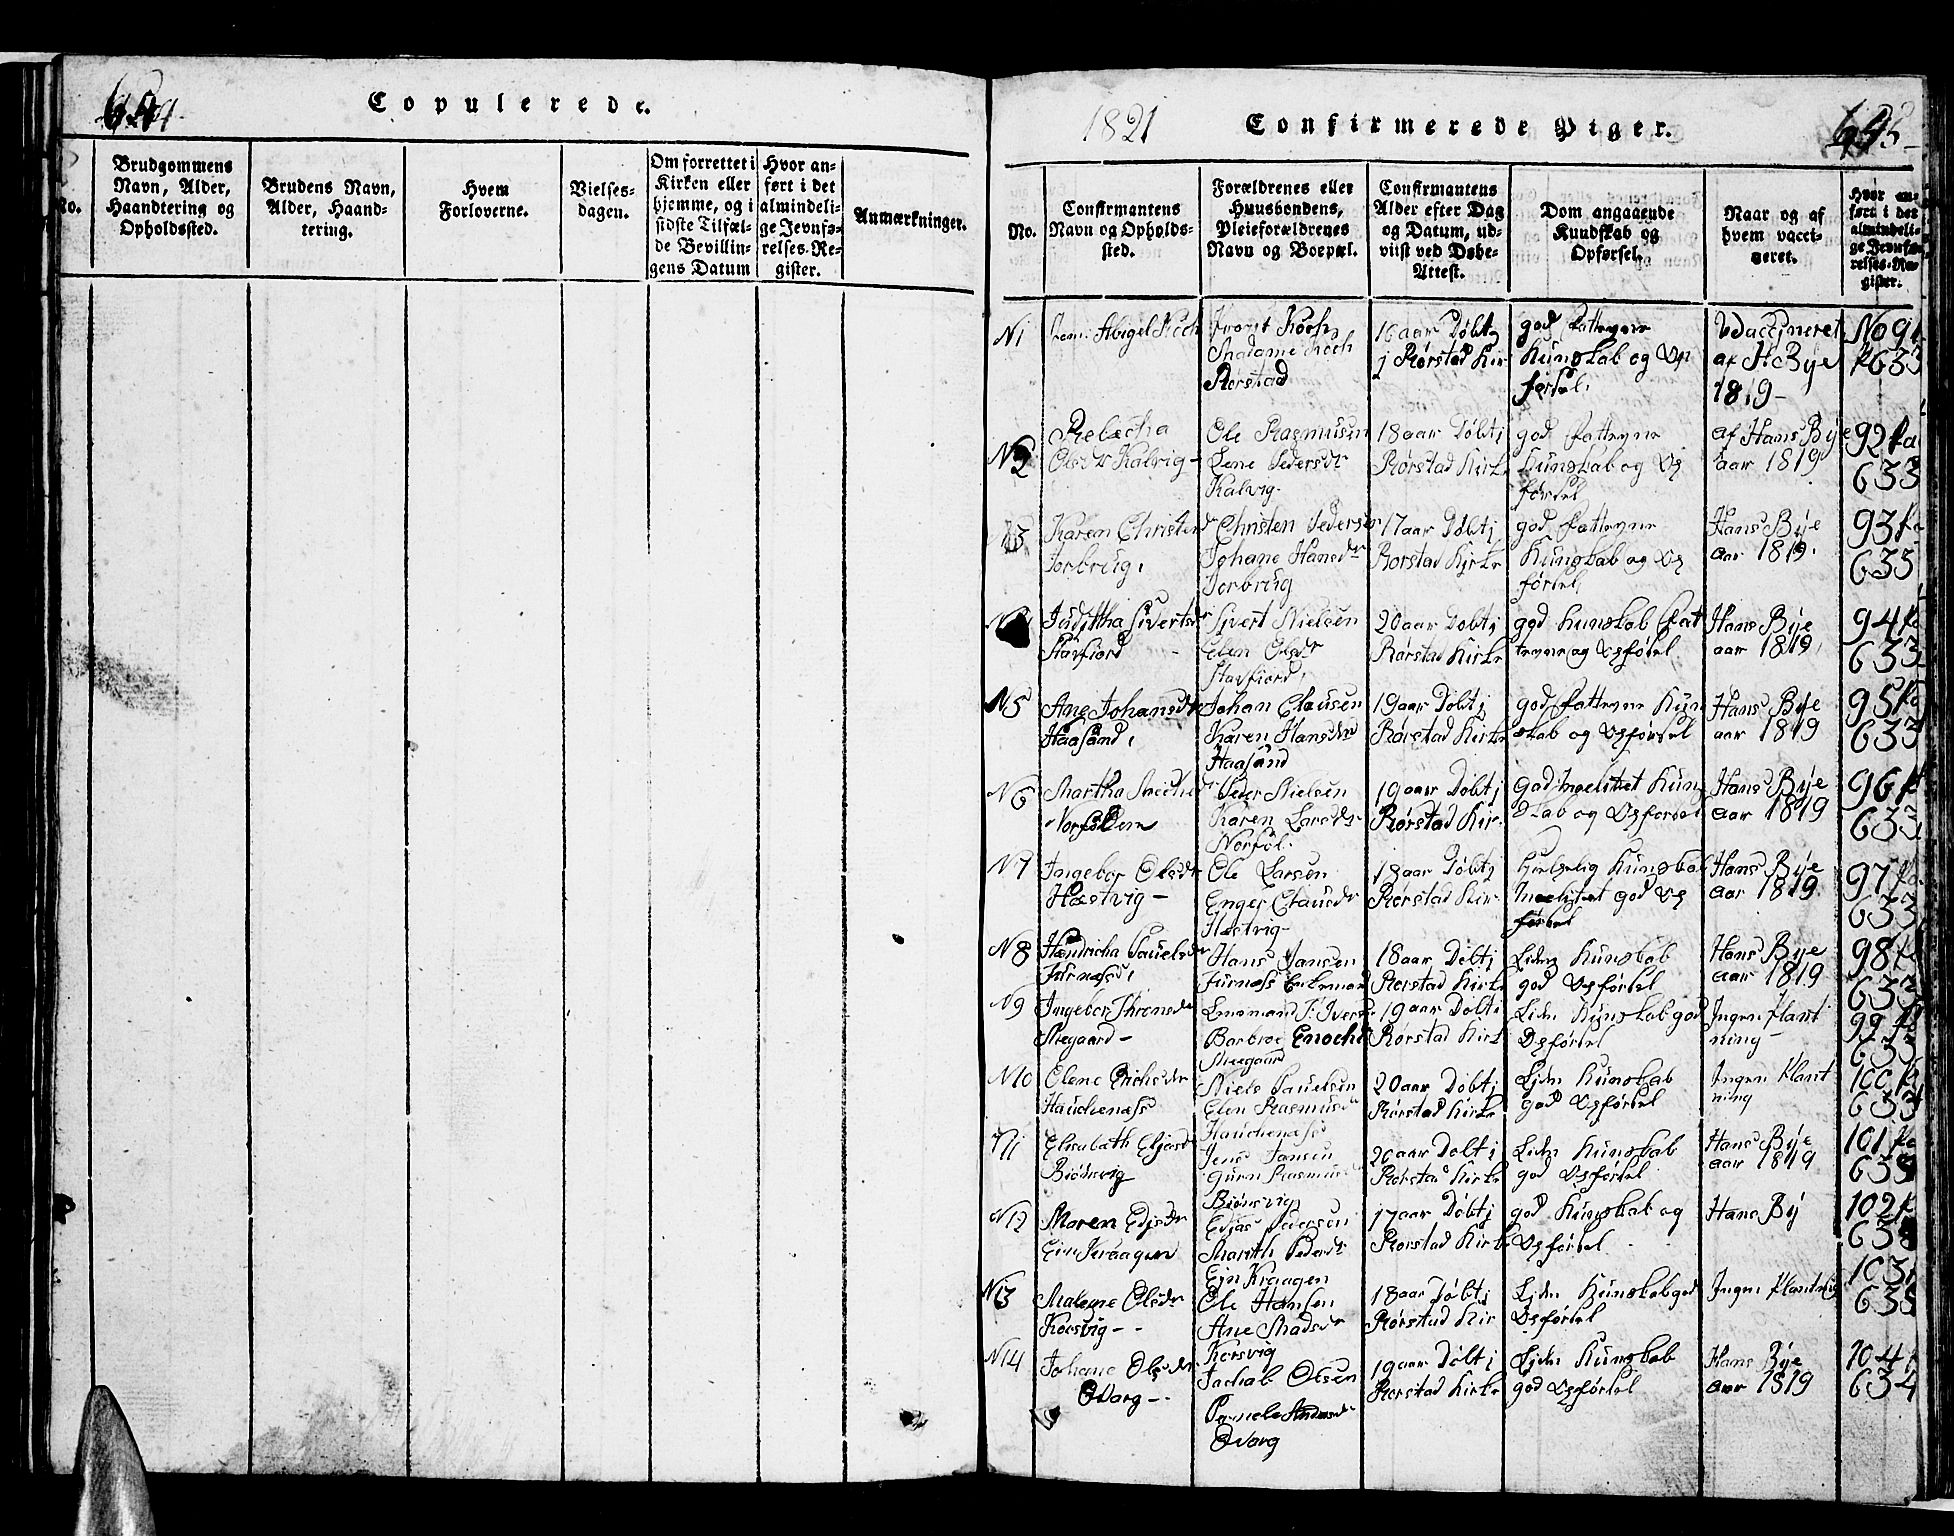 Copulerede.
No.
Brudgommens
Navn, Alder,
Haandtering og
Opholdssted.
Brudens Navn,
Alder, Haand-
tering.
Hvem
Forloverne.
Vielses-
dagen.
Om forrettet i
Kirken eller
hjemme, og i
sidste Tilfæl-
de Bevillin-
gens Datum
Hvor an-
ført i det
almindeli-
ge Jevnfø-
relses-Re-
gister.
Anmærkninger.
1821
Confirmerede Piger.
No.
Confirmantens
Navn og Opholds-
sted.
Forældrenes eller
Huusbondens,
Pleieforældrenes
Navn og Boepæl.
Confirmantens
Alder efter Dag
og Datum, ud-
viist ved Døbe-
Attest.
Dom angaaende
Kundskab og
Opførsel.
Naar og af
hvem vacci-
neret.
Hvor an-
ført i det
almindeli-
ge Jevnfø-
relses-Re-
gister.
N1
Abigel Koch
Koch
Madame Koch
Rørstad
16 aar Døbt
j Rørstad Kir
god
Kunskab og Op
førsel.
Vaccineret
af H Bye
1819 -
No 91
633
N2
Rebecha
Olsdr Kalvig -
Ole Rasmusen
Lene Pedersdr
Kalvig.
18 aar Døbt j
Rørstad Kirke
god
Kunskab og Op
førsel
af Hans Bye
aar 1819
92
633
N3
Karen Christensdr
Torbrug.
Christen Pedersen
Johane Hansdr
Torbrug
17 aar Døbt j
Rørstad Kirke
god
Kunskab og Op
førsel
Hans Bye
aar 1819.
93
633
Judittha Sivertsdr
Stavfiord
Sivert Nielsen
Elen Olsdr
Stavfiord.
20 aar Døbt j
Rørstad Kirke
god Kunskab
og Opførsel
Hans Bye
aar 1819.
94
633
N5
Ane Johansdr
Haasand.
Johan Clausen
Karen Hansdr
Haasand
19 aar Døbt j
Rørstad Kirke
god Kun
skab og Opførsel
Hans Bye
aar 1819
95
633
N6
Martha
Peder Nielsen
Karen Larsdr
Norføl.
19 aar Døbt j
Rørstad Kir.
god Kun
skab og Opførsel
Hans Bye
aar 1819
96
633
N7
Ingebor Olsdr
Hæstvig -
Ole Larsen
Enger Clausdr
Hæstvig -
18 aar Døbt j
Rørstad Kir
Kunskab
god Op
førsel
Hans Bye
aar 1819
97
633
N8
Hendricha Pauelsdr
Furnæss.
Hans Jansen
Furnæss
18 aar Døbt j
Rørstad Kirke
Liden Kunskab
god Opførsel
Hans Bye
aar 1819
98
633
N9
Ingebor
Barbroe Enochs
19 aar Døbt j
Rørstad Kirk
Liden Kunskab god
Opførsel
Ingen Plant
ning -
99
633
N10
Elene Erichsdr
Hauchenæss
Niels Pauelsen
Elen Rasmusdr
Hauchenæss
20 aar Døbt j
Rørstad Kirke
Liden Kunskab
god Opførsel
Ingen Plant
ning
100
633
N11
Elisabeth
Biønsvig
Jens Jansen
Guren Rasmusdr
Biønsvig
20 aar Døbt j
Rørstad Kirke
Liden Kunskab
god Opførsel
Hans Bye
aar 1819
101
N12
Maren
Elias Pedersen
Marith Pedersdr
Ejn Kraagen
17 aar Døbt j
Rørstad Kirke
god Kunskab og
Opførsel
Hans By
102
N13
Malene Olsdr
Korsvig - -
Ole Hansen
Ane Madsdr
Korsvig
18 aar Døbt j
Rørstad Kir
Liden Kunskab god
Opførsel
Ingen
103
N14
Johane Olsdr
Qvarg - -
Jachab Olsen
Qvarg
19 aar Døbt j
Rørstad Kirke
Liden Kunskab
god Opførsel
Hans Bye
aar 1819
104
634